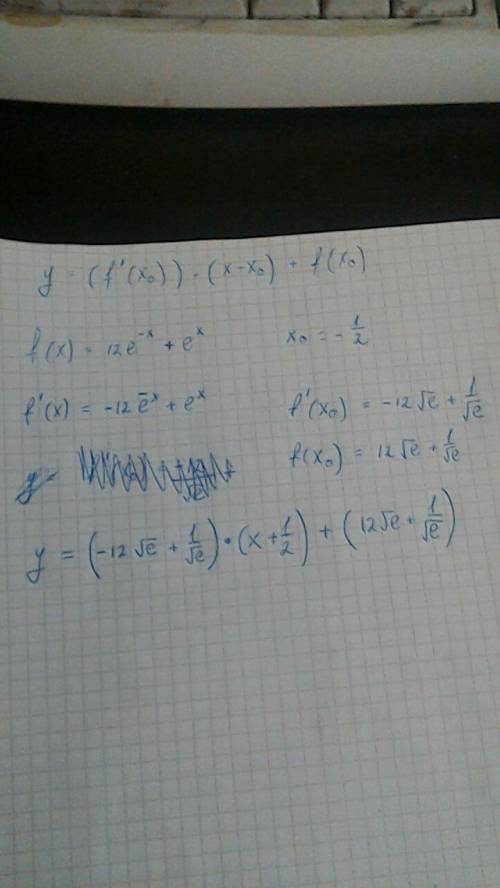 y = (f'(x₀)) · (x-x₀) + f(x₀)
f(x) = 12e^{-x} + e^{x} x₀ = -1/2
f'(x) = -12e^{-x} + e^{x} f'(x₀) = -12√e + 1/√e
y= f(x₀) = 12√e + 1/√e
y = (-12√e + 1/√e) · (x + 1/2) + (12√e + 1/√e)